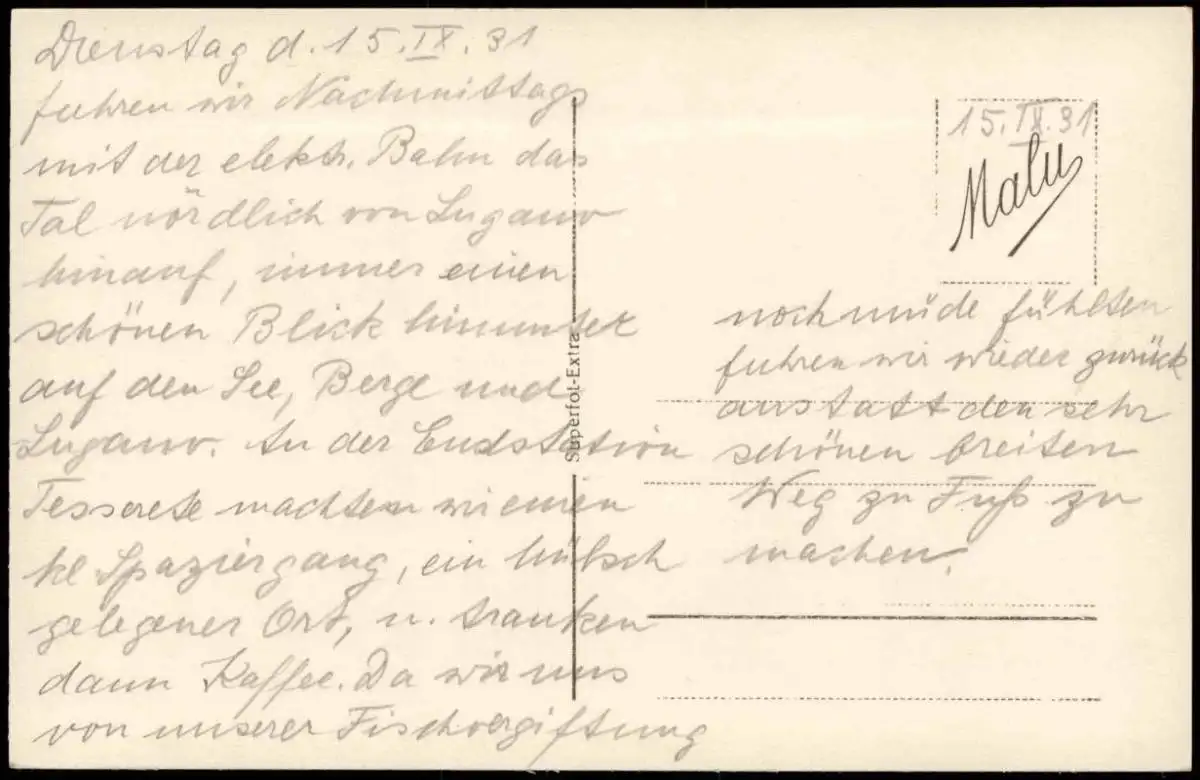 Dienstag d. 15.IX.31
fuhren wir Nachmittags
mit der elektr. Bahn das
Tal nördlich von Lugano
hinauf, immer einen
schönen Blick hinunter
auf den See, Berge und
Lugano. An der Endstation
Tesserete machten wir einen
kl Spaziergang, ein hübsch
gelegener Ort, u. tranken
dann Kaffee. Da wir uns
von unserer Fischvergiftung
Superfot-Extra
15.IX.31
Malu
noch müde fühlten
fuhren wir wieder zurück
anstatt den sehr
schönen breiten
Weg zu Fuß zu
machen.